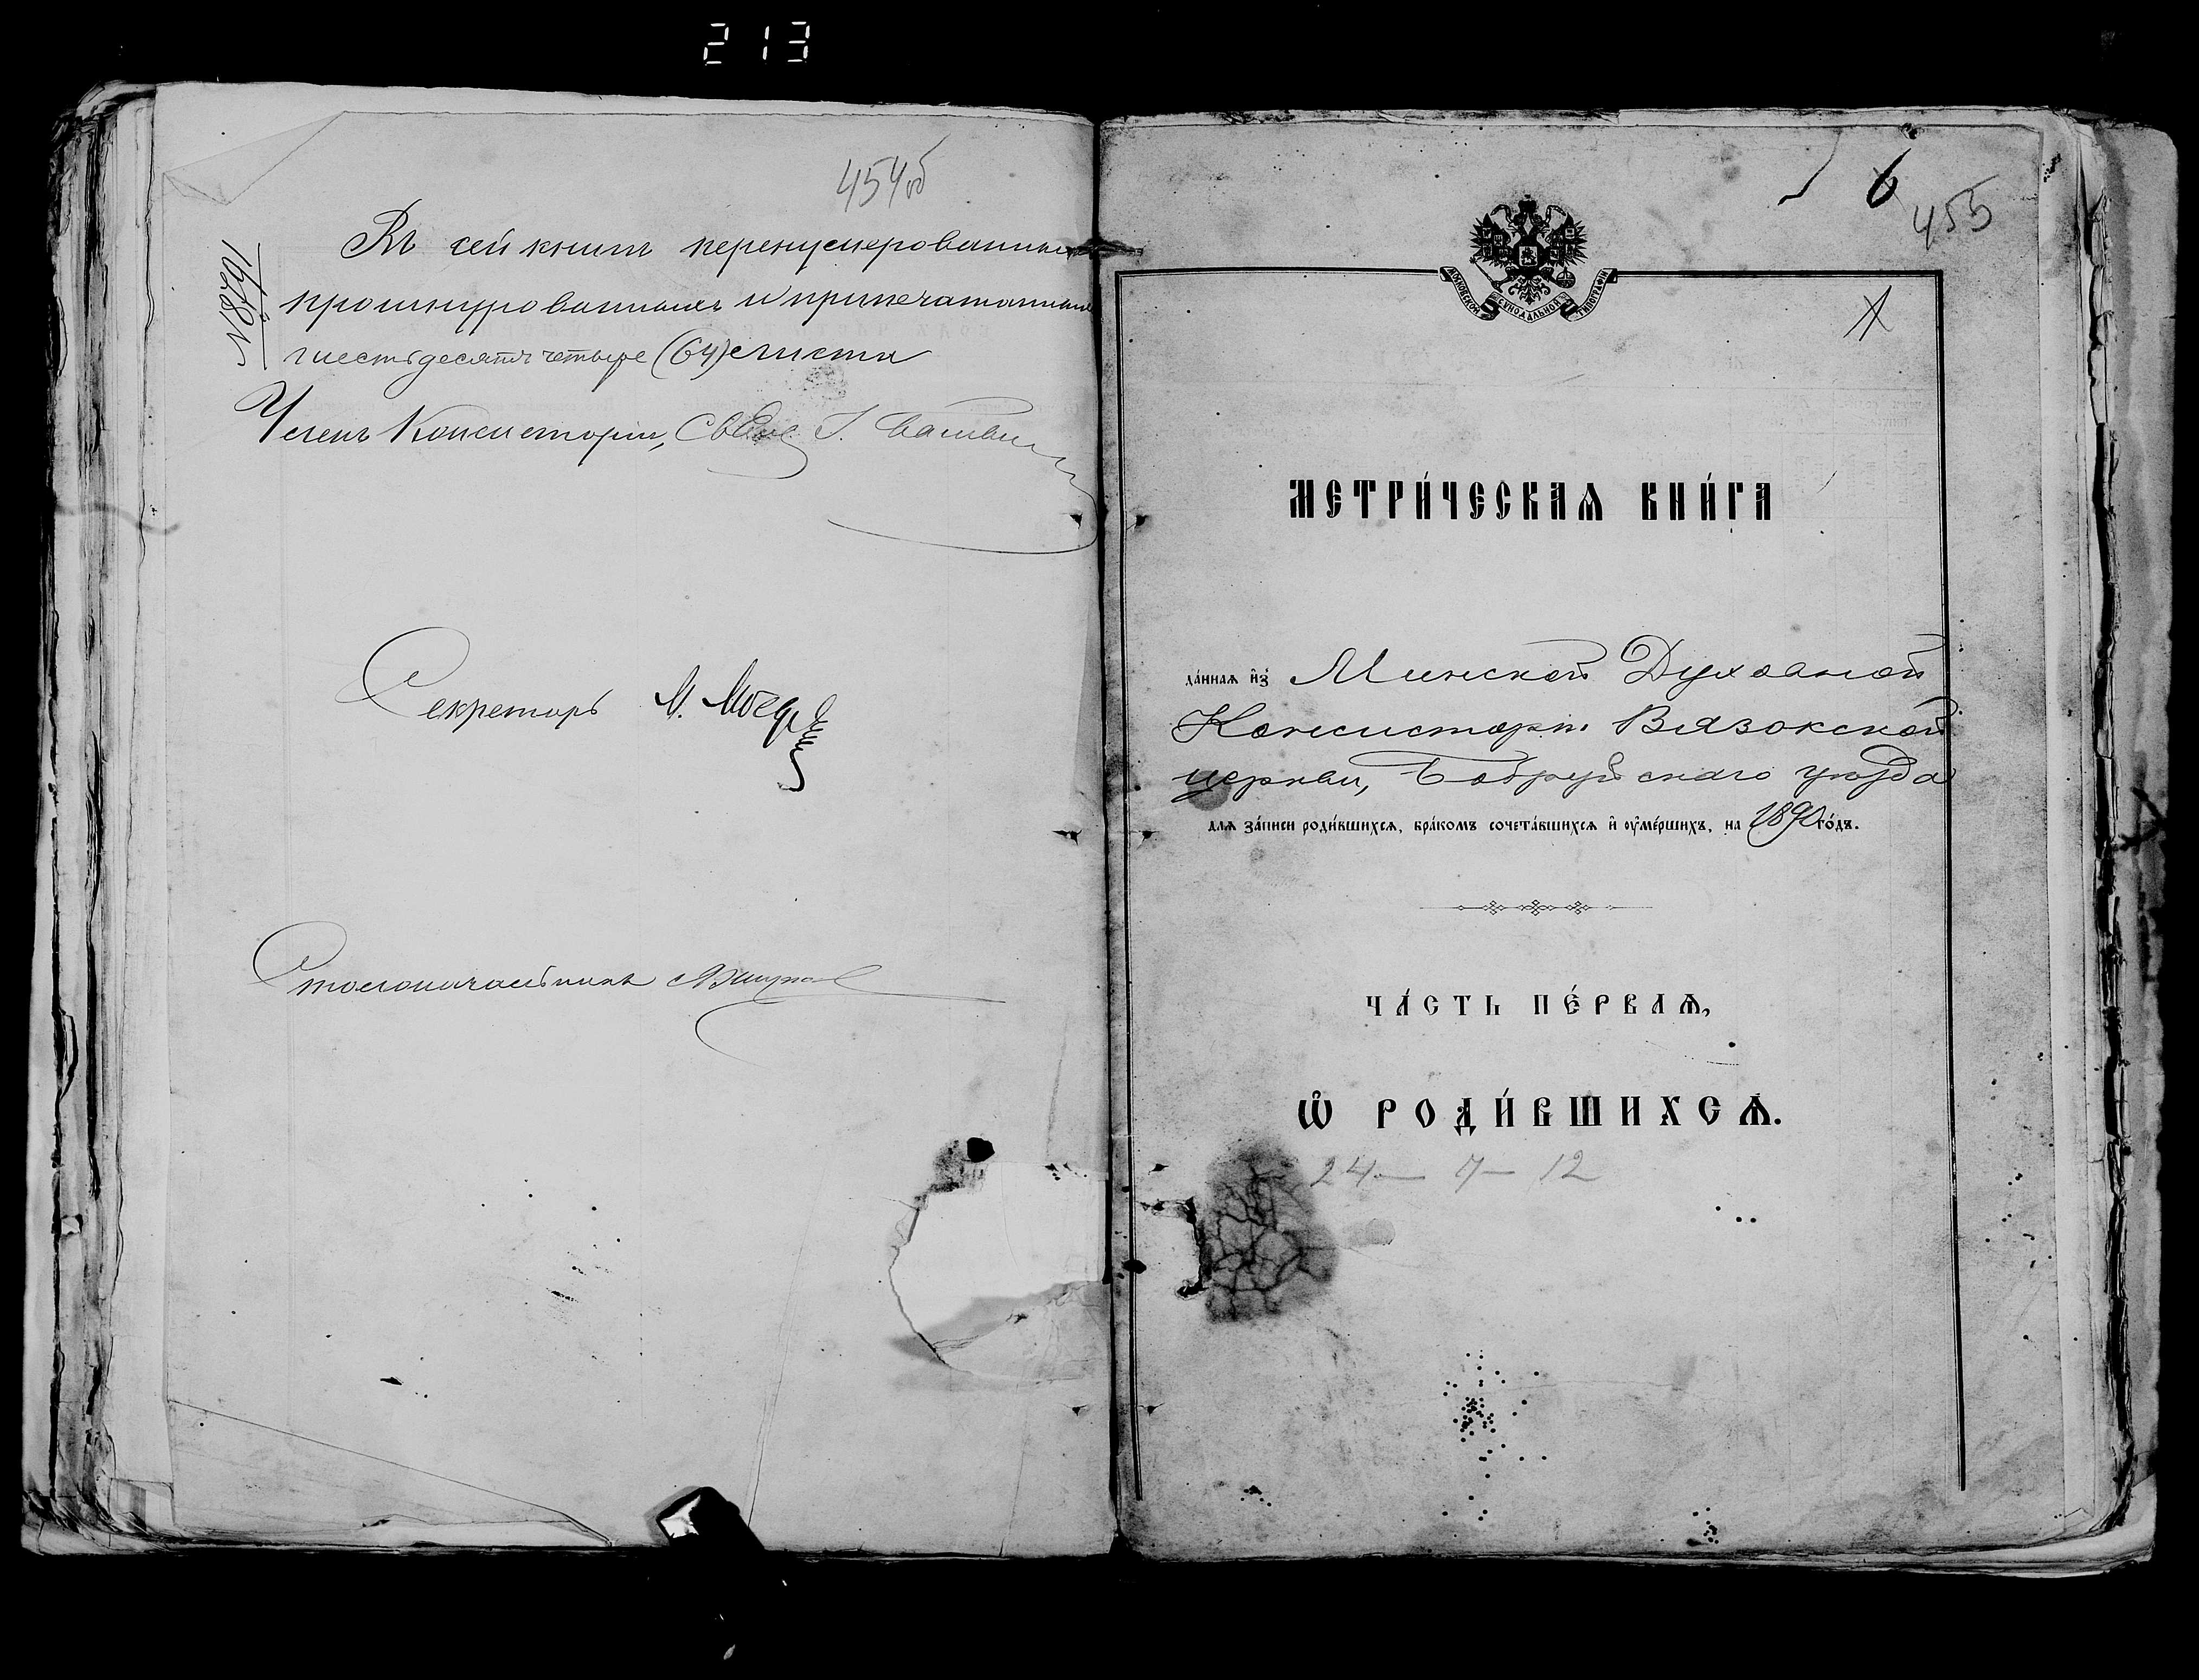 213
454 об
Въ сей книгѣ перенумерованныхъ
прошнурованныхъ и припечатанныхъ
шестьдесятъ четыре (64) листа
№ 1628
Членъ Консисторіи, І.
Секретарь М.
Столоначальникъ
6
455
МОСКОВСКОЙ СѴНОДАЛЬНОЙ ТИПОГРАФІИ
МЕТРИ́ЧЕСКАѦ КНИ́ГА
да́ннаѧ и҆з̾ Минской Духовной
Консисторіи Вязокской
церкви, Бобруйскаго уѣзда
длѧ за́писи роди́вшихсѧ, бра́комъ сочета́вшихсѧ и҆ ᲂу҆ме́ршихъ, на 1890 го́дъ.
ЧА́СТЬ ПЕ́РВАѦ,
Ѽ РОДИ́ВШИХСѦ.
24 — 7 — 12